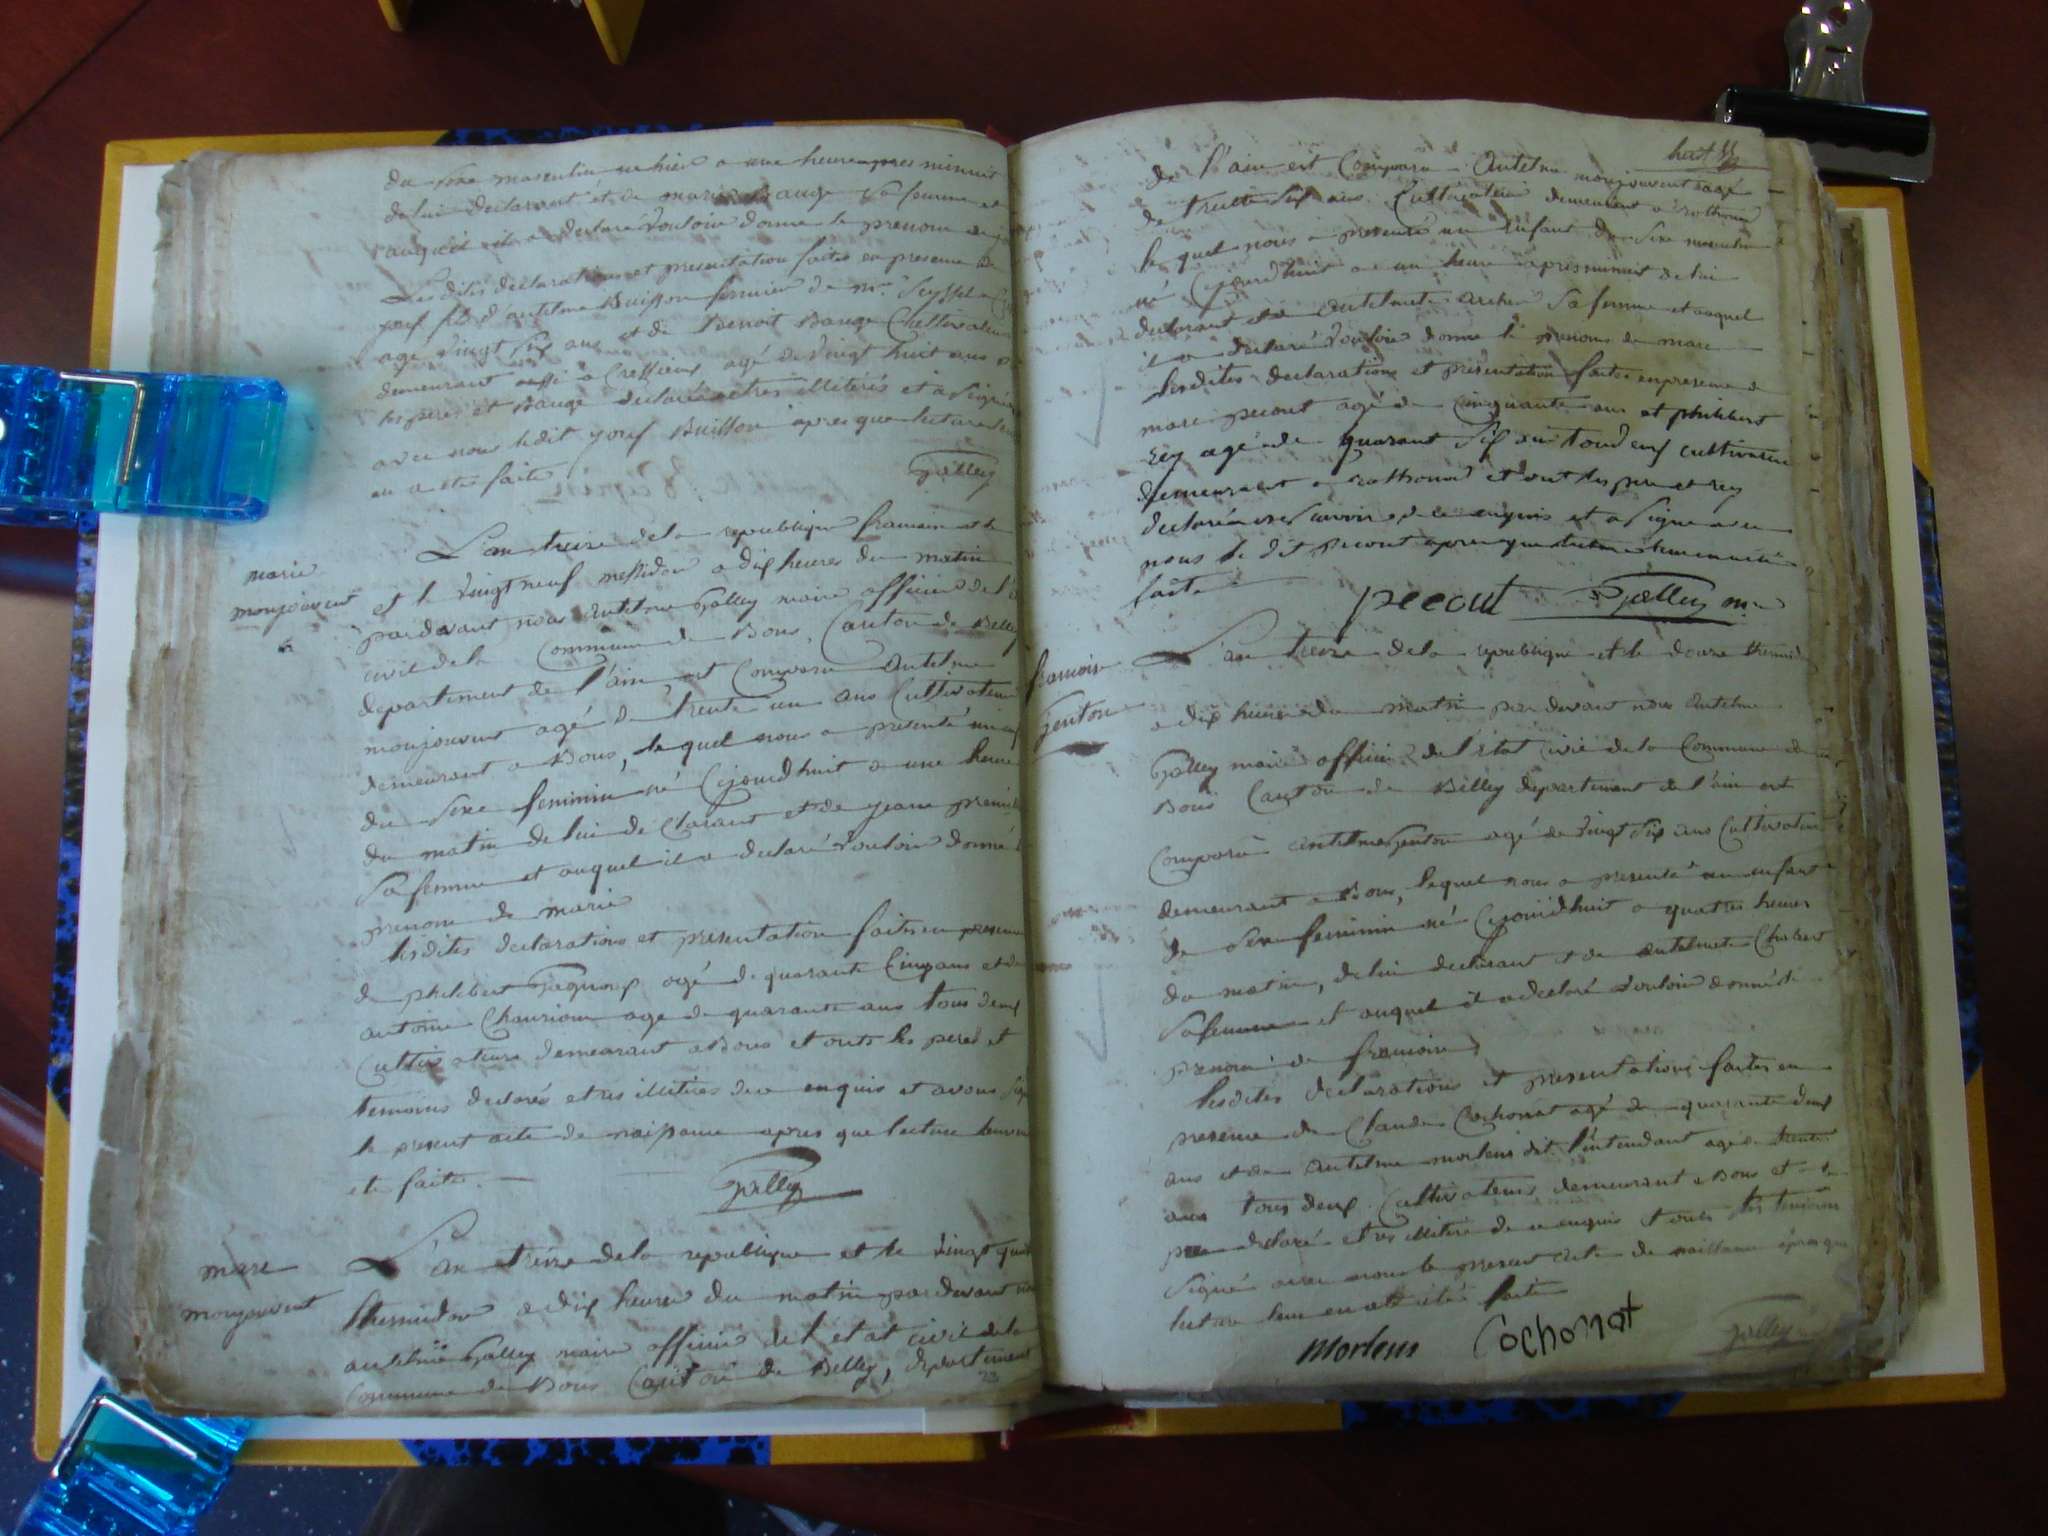 du sexe masculin né hier a une heure apres minuit
de lui declarant et de marie Bauge sa femme et
auquel il a declaré vouloir donner le prenom de
Les dites declarations et presentation faites en presence de
josef fils d'antelme Buisson fermier de mr. Seyssel a
agé vingt six ans et de Benoit Bauge Cultivateur
demeurant aussi a Cressieux agé de vingt huit ans
les peres et Bauge declaré etres illiterés et a signé
avec nous ledit josef Buisson apres que lecture
en a ete faite Galley
marie
monjouvent
L'an treize de la republique francaise et le
et le vingt neuf messidor a dix heures du matin
pardevant nous antelme Galley maire officier de l'é
civil de la Commune de Bons, Canton de Belley
departement de l'ain, est Comparu antelme
monjouvent agé de trente un ans Cultivateur
demeurant a Bons, le quel nous a presenté un enf
du sexe feminin né Cejourdhuit a une heure
du matin de lui de Clarant et de jeane
sa femme et auquel il a declaré vouloir donné
prenom de marie
les dites declarations et presentation faites en presence
de philibert agé de quarante Cinq ans et de
antoine agé de quarante ans tous deux
Cultivateurs demeurant a Bons et onts les peres et
temoins declarés etres illitéres de ce enquis et avons signé
le present acte de naissance apres que lecture leur en
eté faite. Galley
marc
monjouvent
L'an treize de la republique et le vingt
thermidor a dix heures du matin pardevant nous
antelme Galley maire officier de l'etat civil de la
Commune de Bons Canton de Belley, departement
23
huit
de l'ain est Comparu Antelme monjouvent agé
de trente six ans Cultivateur demeurant a rothonod
le quel nous a presenté un Enfant du sexe masculin
né Cejourdhuit a un heure apres minuit de lui
declarant et d'antelmete archer sa femme et auquel
il a declaré vouloir donner le prenoms de marc
les dites declarations et presentation faites en presence de
marc pecout agé de Cinquante ans et philibert
Rey agé de quarant six ans tous deux cultivateur
demeurant a rothonod et ont les pere et rey
declaré ne savoir de ce enquis et a signé avec
nous le dit pecout apres que lecture leur en a été
faite
pecout Galley m.re
francoise
Genton
L'an treize de la republique et le douze thermidor
a dix heures du matin par devant nous Antelme
Galley maire officier de l'état civil de la Commune de
Bons Canton de Belley departement de l'ain est
Comparu antelme Genton agé de vingt six ans Cultivateur
demeurant a Bons, lequel nous a presenté un enfant
du sexe feminin né Cejourdhuit a quatres heures
du matin, de lui declarant et de antelmete Chabert
sa femme et auquel il a declaré vouloir donné le
prenom de francoise
les dites declarations et presentations faites en
presence de Claude Cochonat agé de quarante deux
ans et de antelme morlens dit l'intendant agé de trente
ans tous deux Cultivateurs demeurant a Bons et a le
pere declaré etres illitéré de ce enquis et onts les temoins
Signé avec nous le present acte de naissance apres que
lecture leur en at été faite
Morlens Cochonat Galley